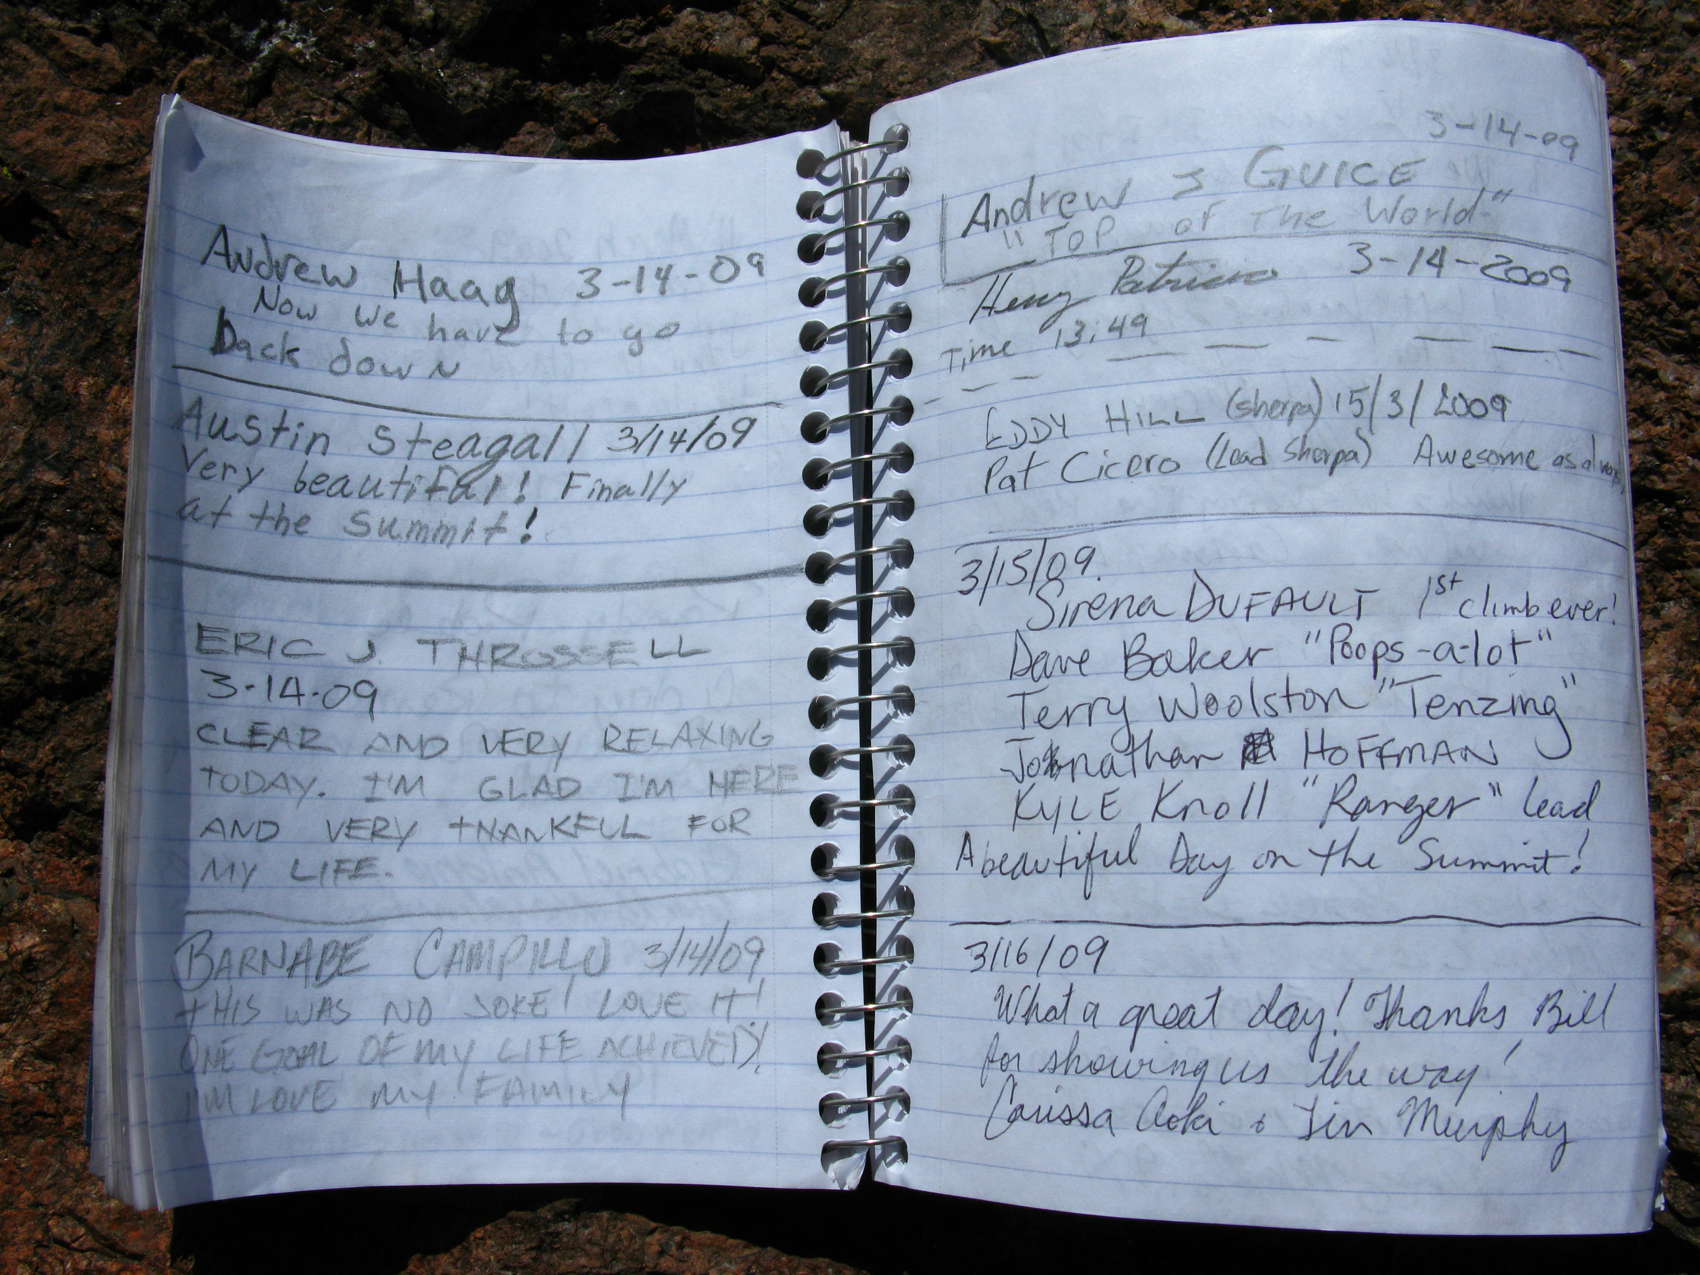 Andrew Haag 3-14-09
Now we have to go
back down
Austin Steagall 3/14/09
Very beautiful! Finally
at the summit!
ERIC J. THROSSELL
3-14-09
CLEAR AND VERY RELAXING
TODAY. I'M GLAD I'M HERE
AND VERY THANKFUL FOR
MY LIFE.
BARNABE CAMPILLO 3/14/09
THIS WAS NO JOKE! LOVE IT!
ONE GOAL OF MY LIFE ACHIEVED!
I'M LOVE MY FAMILY
3-14-09
Andrew J GUICE
"TOP OF THE World"
Henry 3-14-2009
Time 13:49
EDDY HILL (sherpa) 15/3/2009
Pat Cicero (Lead Sherpa) Awesome as always
3/15/09.
Sirena DUFAULT 1st climb ever!
Dave Baker "Poops-a-lot"
Terry Woolston "Tenzing"
Johnathan HOFFMAN
KYLE Knoll "Ranger" lead
A beautiful Day on the Summit!
3/16/09
What a great day! Thanks Bill
for showing us the way!
Carissa Aoki & Murphy